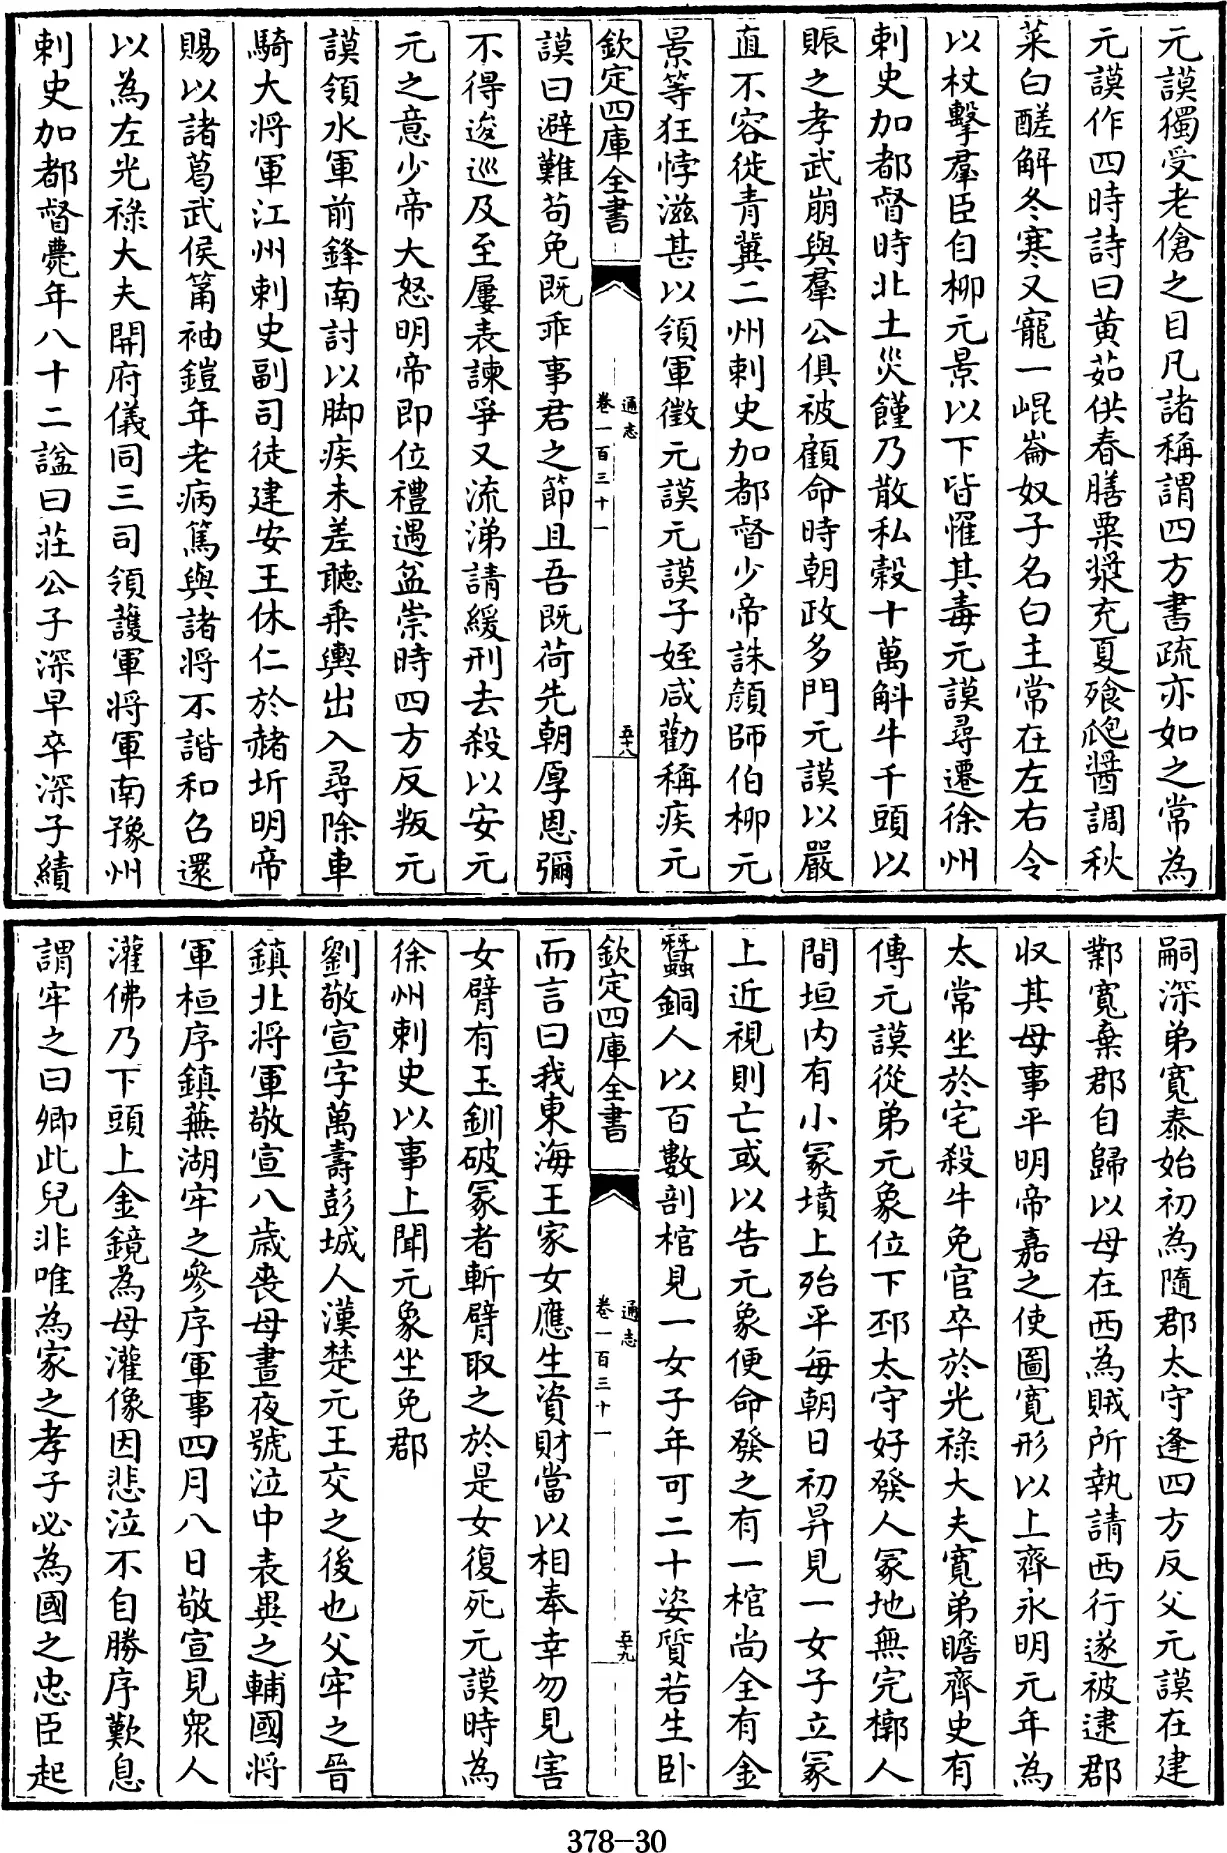 元謨獨受老傖之目凡諸稱謂四方書疏亦如之常為
元謨作四時詩曰黄茹供春膳粟漿充夏飱瓟醬調秋
菜白醝解冬寒又寵一崐崙奴子名白主常在左右令
以杖擊羣臣自柳元景以下皆懼其毒元謨尋遷徐州
刺史加都督時北土災饉乃散私穀十萬斛牛千頭以
賑之孝武崩與羣公俱被顧命時朝政多門元謨以嚴
直不容徙青冀二州刺史加都督少帝誅顔師伯柳元
景等狂悖滋甚以領軍徵元謨元謨子姪咸勸稱疾元
欽定四庫全書
通志
卷一百三十一
五十八
謨曰避難茍免既乖事君之節且吾既荷先朝厚恩彌
不得逡巡及至屢表諫爭又流涕請緩刑去殺以安元
元之意少帝大怒明帝即位禮遇益崇時四方反叛元
謨領水軍前鋒南討以脚疾未差聽乘輿出入尋除車
騎大將軍江州刺史副司徒建安王休仁於赭圻明帝
賜以諸葛武侯筩袖鎧年老病篤與諸將不諧和召還
以為左光祿大夫開府儀同三司領護軍將軍南豫州
刺史加都督薨年八十二諡曰莊公子深早卒深子績
嗣深弟寛泰始初為隨郡太守逢四方反父元謨在建
鄴寛棄郡自歸以母在西為賊所執請西行遂被逮郡
收其母事平明帝嘉之使圖寛形以上齊永明元年為
太常坐於宅殺牛免官卒於光祿大夫寛弟瞻齊史有
傳元謨從弟元象位下邳太守好發人冢地無完槨人
間垣内有小冢墳上殆平每朝日初昇見一女子立冢
上近視則亡或以告元象便命發之有一棺尚全有金
蠶銅人以百數剖棺見一女子年可二十姿質若生卧
欽定四庫全書
通志
卷一百三十一
五十九
而言曰我東海王家女應生資財當以相奉幸勿見害
女臂有玉釧破冢者斬臂取之於是女復死元謨時為
徐州刺史以事上聞元象坐免郡
劉敬宣字萬壽彭城人漢楚元王交之後也父牢之晉
鎮北將軍敬宣八歳喪母晝夜號泣中表異之輔國將
軍桓序鎮蕪湖牢之參序軍事四月八日敬宣見衆人
灌佛乃下頭上金鏡為母灌像因悲泣不自勝序歎息
謂牢之曰卿此兒非唯為家之孝子必為國之忠臣起
378-30